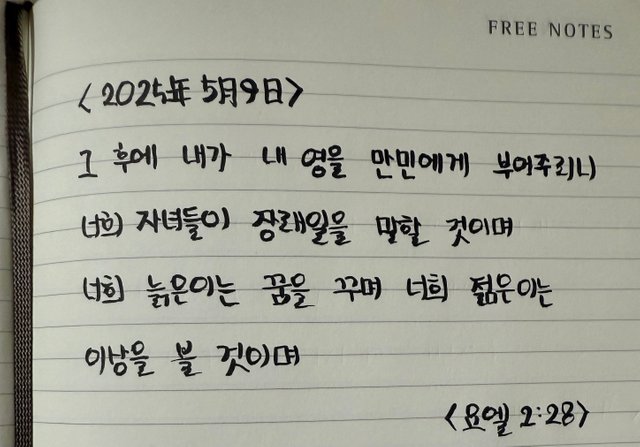 FREE NOTES
<2025年 5月9日>
그 후에 내가 내 영을 만민에게 부어주리니
너희 자녀들이 장래일을 말할 것이며
너희 늙은이는 꿈을 꾸며 너희 젊은이는
이상을 볼 것이며
<요엘 2:28>